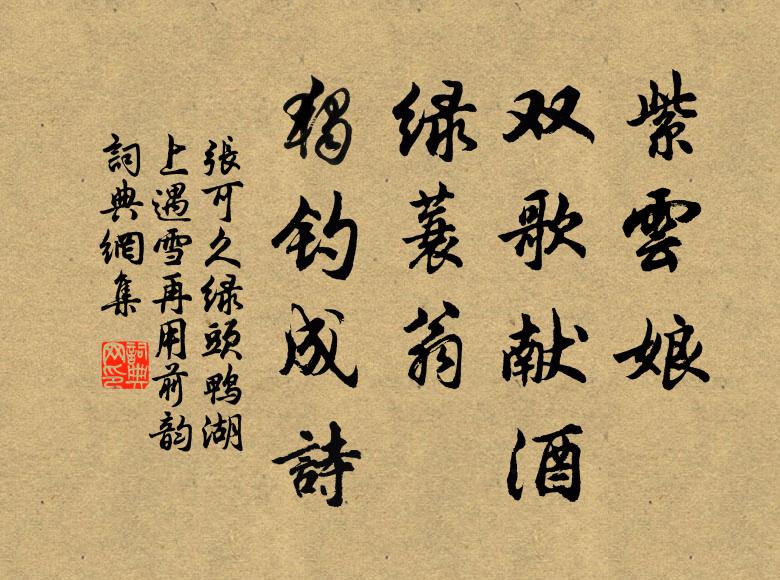 紫雲娘
双歌献酒
緑蓑翁
獨钓成詩
張可久緑頭鴨湖
上遇雪再用前韵
詞典網集
詞典网印